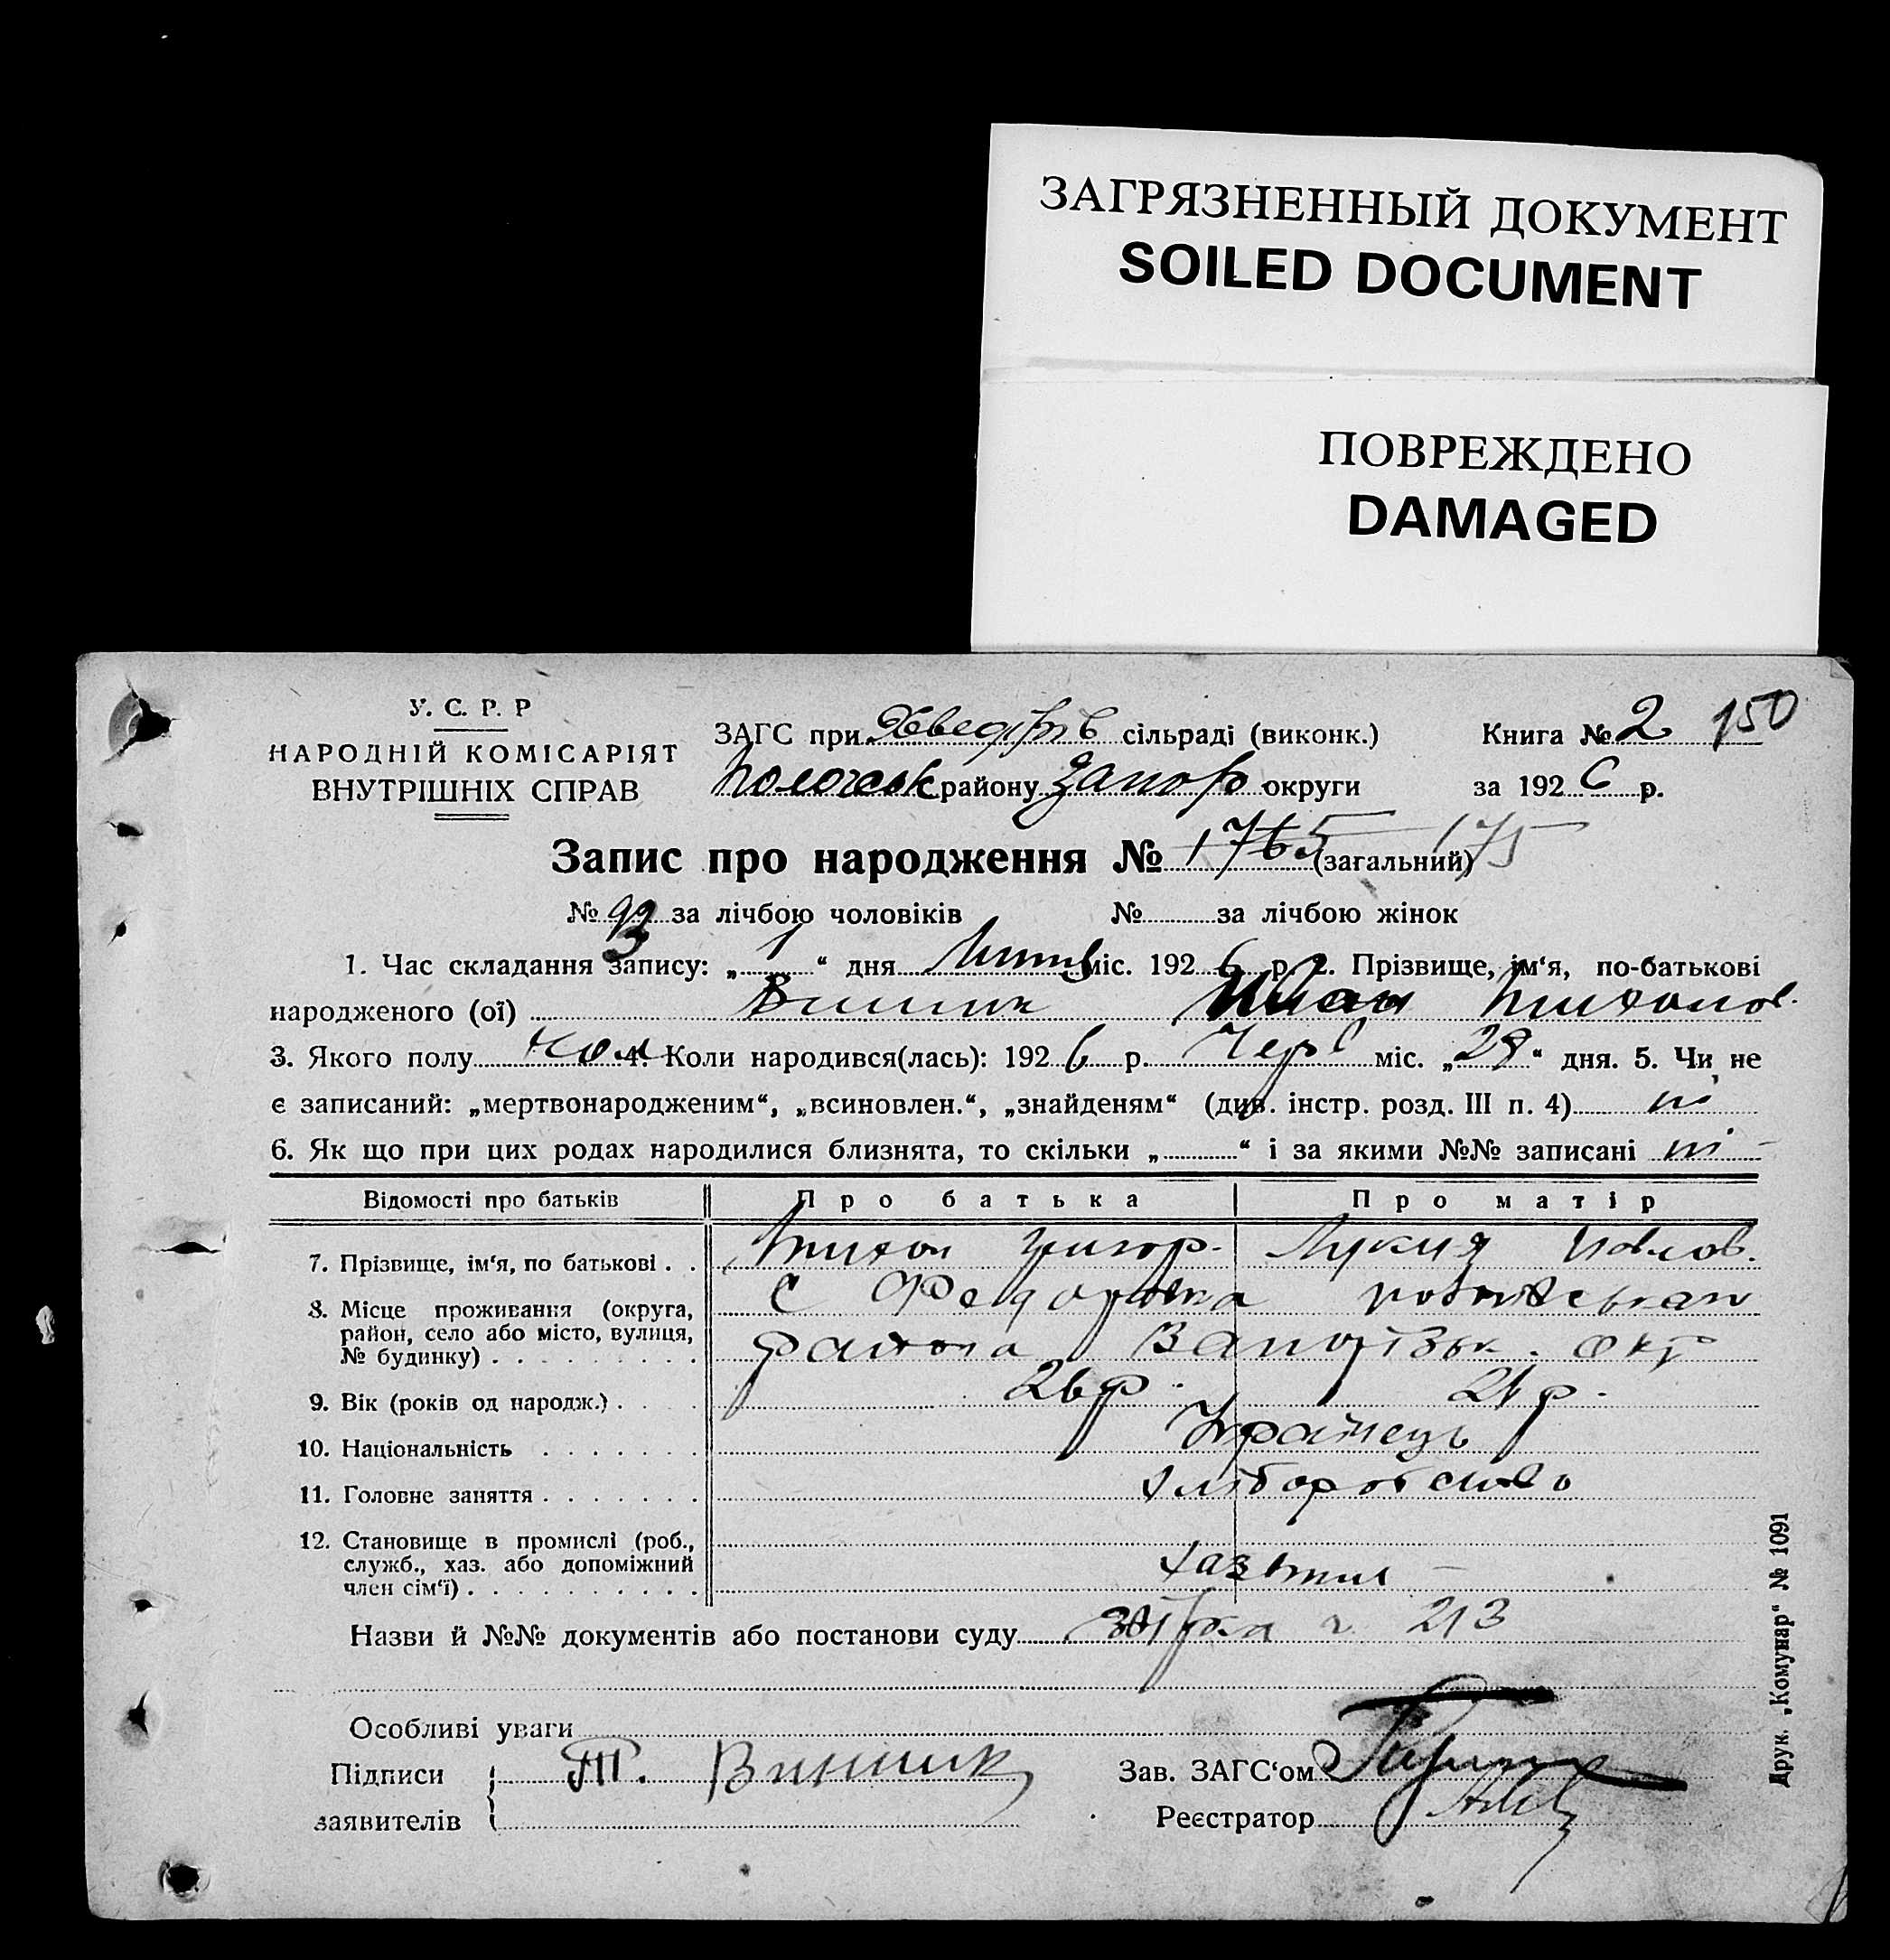 ЗАГРЯЗНЕННЫЙ ДОКУМЕНТ
SOILED DOCUMENT
ПОВРЕЖДЕНО
DAMAGED
У. С. Р. Р
НАРОДНІЙ КОМІСАРІЯТ
ВНУТРІШНІХ СПРАВ
ЗАГС при Хведорів сільраді (виконк.)
району Запор округи
Книга № 2 150
за 1926 р.
Запис про народження № 1765 (загальний) 175
№ 93 за лічбою чоловіків № за лічбою жінок
1. Час складання запису: „ 1 “ дня Липня міс. 1926 р. 2. Прізвище, ім‘я, по-батькові
народженого (ої) Винник Иван Тихонов.
3. Якого полу Чол 4. Коли народився(лась): 1926 р. Черв міс. „29“ дня. 5. Чи не
є записаний: „мертвонародженим“, „всиновлен.“, „знайденям“ (див. інстр. розд. III п. 4) ні
6. Як що при цих родах народилися близнята, то скільки „ “ і за якими №№ записані ні –
Відомості про батьків Про батька Про матір
7. Прізвище, ім‘я, по батькові . . Тихон Григор. Лукия Павлов.
8. Місце проживання (округа, С Федоровка
район, село або місто, вулиця, района Запорізьк. окр
№ будинку) . . . . . . . . .
9. Вік (років од народж.) . . . . 26 р. 26 р.
10. Національність . . . . . . . Українець
11. Головне заняття . . . . . . . хліборобство
12. Становище в промислі (роб.,
служб., хаз. або допоміжний
член сім‘ї) . . . . . . . . . . хазяіни –
Назви й №№ документів або постанови суду ч 213
Особливі уваги
Підписи Т. Винник
заявителів
Зав. ЗАГС‘ом
Реєстратор
Друк. „Комунар“ № 1091